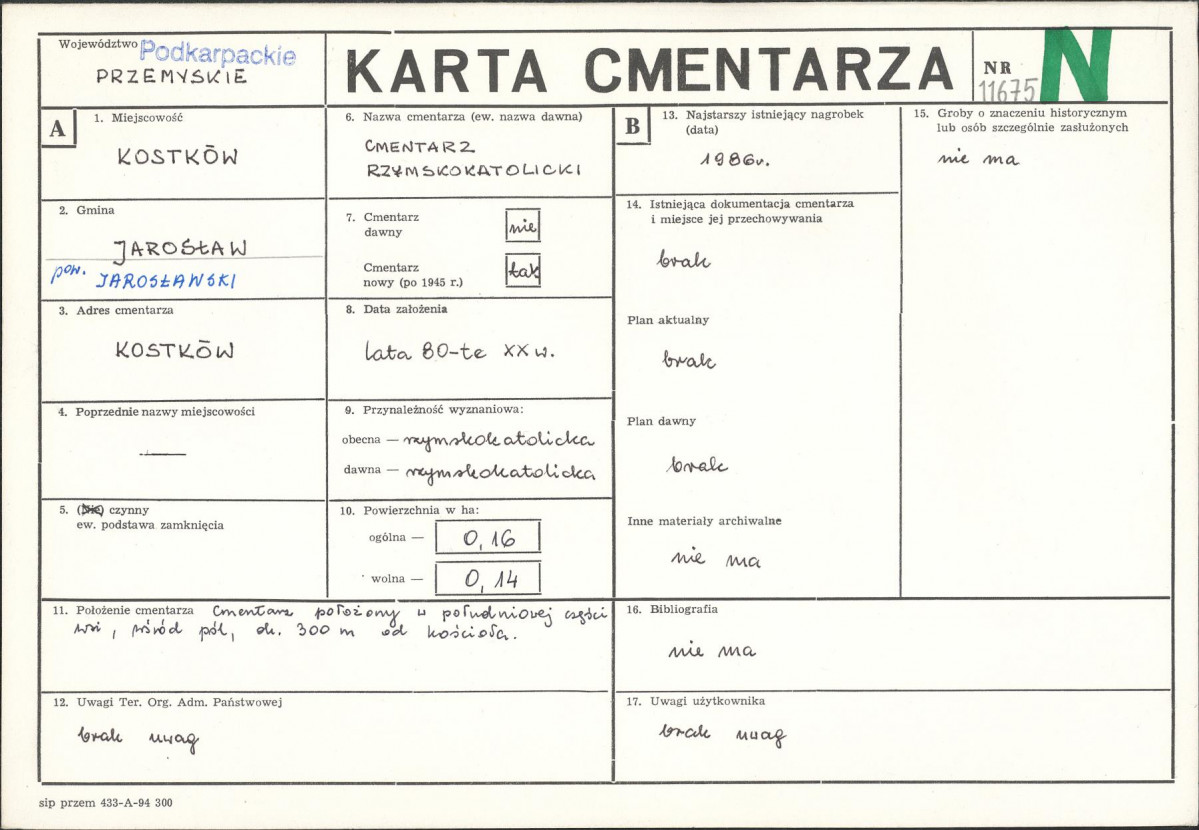 Województwo Podkarpackie
PRZEMYSKIE
KARTA CMENTARZA
NR
11675
N
A
1. Miejscowość
KOSTKÓW
2. Gmina
JAROSŁAW
pow. JAROSŁAWSKI
3. Adres cmentarza
KOSTKÓW
4. Poprzednie nazwy miejscowości
—
5. (Nie) czynny
ew. podstawa zamknięcia
6. Nazwa cmentarza (ew. nazwa dawna)
CMENTARZ
RZYMSKOKATOLICKI
7. Cmentarz
dawny nie
Cmentarz
nowy (po 1945 r.) tak
8. Data założenia
lata 80-te XX w.
9. Przynależność wyznaniowa:
obecna — rzymskokatolicka
dawna — rzymskokatolicka
10. Powierzchnia w ha:
ogólna — 0,16
wolna — 0,14
11. Położenie cmentarza Cmentarz położony w południowej części
wsi, wśród pól, ok. 300 m od kościoła.
12. Uwagi Ter. Org. Adm. Państwowej
brak uwag
B
13. Najstarszy istniejący nagrobek
(data)
1986r.
14. Istniejąca dokumentacja cmentarza
i miejsce jej przechowywania
brak
Plan aktualny
brak
Plan dawny
brak
Inne materiały archiwalne
nie ma
15. Groby o znaczeniu historycznym
lub osób szczególnie zasłużonych
nie ma
16. Bibliografia
nie ma
17. Uwagi użytkownika
brak uwag
sip przem 433-A-94 300